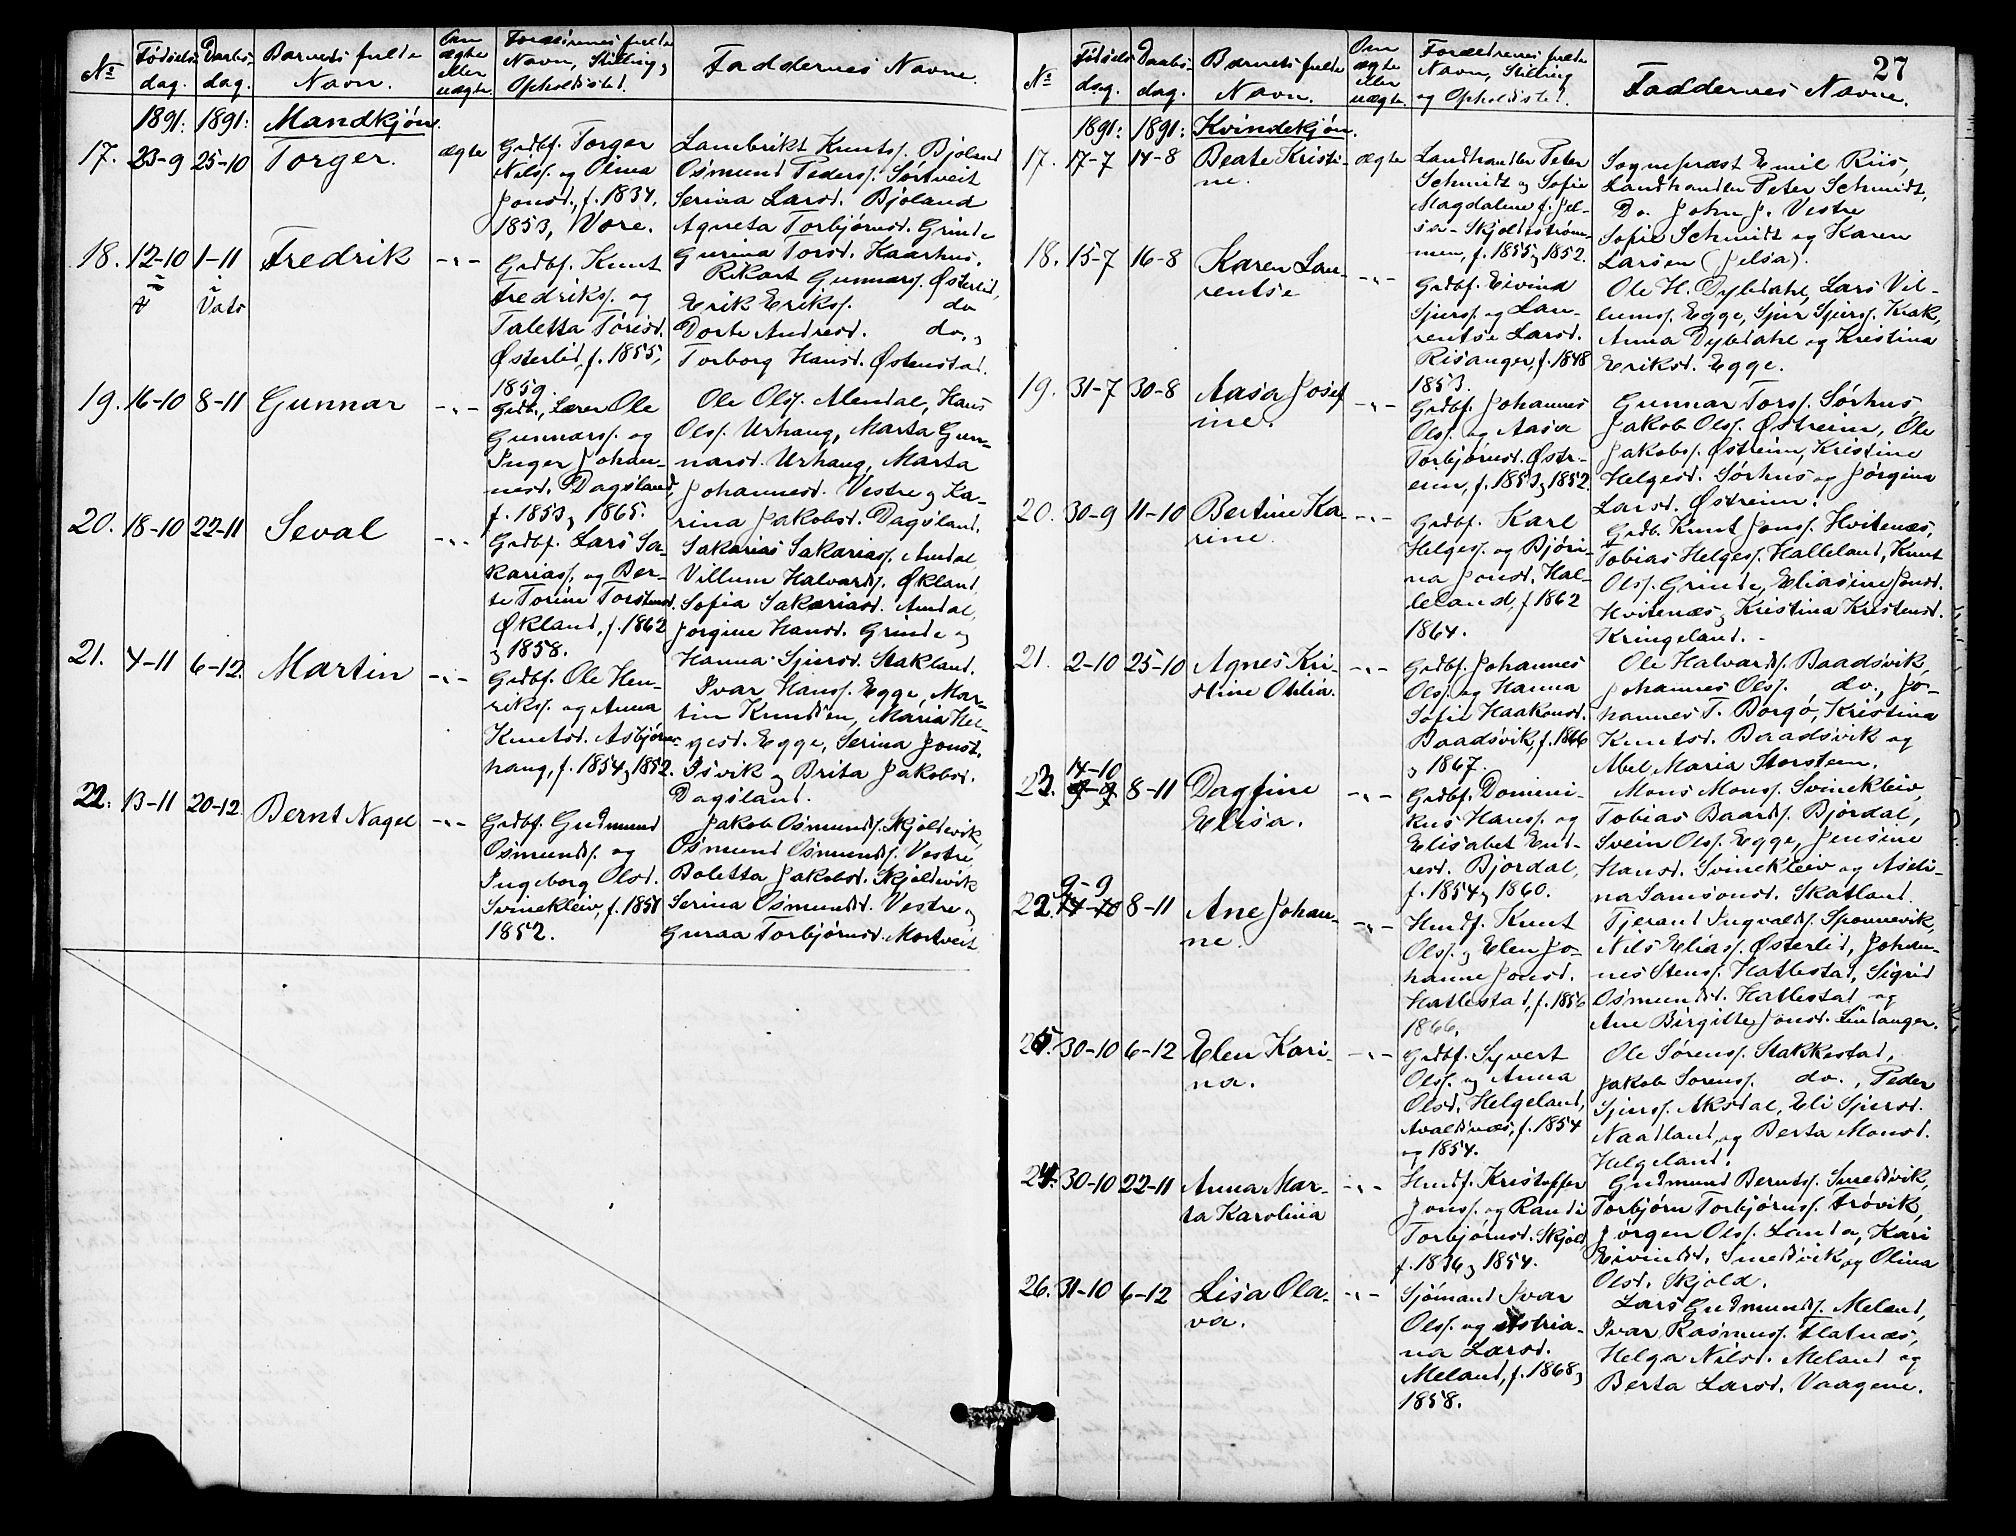 27
No
Fødsels-
dag.
Daabs-
dag.
Barnets fulde
Navn.
Om
ægte
eller
uægte
Forældrenes fulde
Navn, Stilling,
Opholdsted.
Faddernes Navne.
1891: 1891: Mandkjøn.
17. 23-9 25-10 Torger. ægte
Grdbf. Torger
Nilss. og
Jonsd., f. 1834,
1853, Vore.
Lambrikt Knuts. Bjoland
Osmund Peders. Sørtveit
Serina Larsd. Bjoland
Agneta Torbjørnsd. Grinde
Gurina Torsd. Kaarhus.
18. 12-10 1-11 Fredrik -"-
Vats
Grdbf. Knut
Fredriks. og
Taletta Torisd.
Østerlid, f. 1855,
1859.
Rikart Gunnars. Østerlid,
Erik Eriks. do
Dorte Andresd. do.,
Torborg Hansd. Østenstad.
19. 16-10 8-11 Gunnar -"-
Grdb., Lærer Ole
Gunnars. og
Inger Johan-
nesd. Dagsland,
f. 1853 1865.
Ole Ols. Alendal, Hans
Ols. Urhaug, Marta Gun-
narsd. Urhaug, Marta
Johannesd. Vestre og Ka-
rina Jakobsd. Dagsland.
20. 18-10 22-11 Seval -"-
Grdbf. Lars Sa-
karias. og Ber-
te Torine Torstensd.
Økland, f. 1862
og 1858.
Sakarias Sakarias. Amdal,
Villum Halvards. Økland,
Sofia Sakariasd. Amdal,
Jorgine Hansd. Grinde og
Hanna Sjursd. Stakland.
21. 4-11 6-12. Martin -"-
Grdbf. Ole Hen-
riks. og Anna
Knutsd. Asbjørns-
haug, f. 1854 og 1852.
Ivar Hans. Egge, Mar-
tin Knudsen, Maria Hel-
gesd. Egge, Serina Jonsd.
Isvik og Brita Jakobsd.
Dagsland.
22. 13-11 20-12. Bernt Nagel -"-
Grdbf. Gudmund
Osmunds. og
Ingeborg Olsd.
Svinekleiv, f. 1851
1852.
Jakob Osmunds. Skjoldevik,
Osmund Osmunds. Vestre,
Boletta Jakobsd. Skjoldevik
Serina Osmundsd. Vestre og
Guraa Torbjørnsd. Mortveit
No
Fødsels-
dag.
Daabs-
dag.
Barnets fulde
Navn.
Om
ægte
eller
uægte.
Forældrenes fulde
Navn, Stilling
og Opholdsted.
Faddernes Navne.
1891: 1891: Kvindekjøn.
17. 17-7 14-8 Beate Kristi-
ne. ægte
Landhandler Peter
Schmidt og Sofie
Magdalene f. Jel-
sa - Skjoldstrøm-
men, f. 1855 og 1852.
Sognepræst Emil Riis,
Landhandler Peter Schmidt,
Do. John J. Vestre
Sofie Schmidt og Karen
Larsen (Jelsa).
18. 15-7 16-8 Karen Lau-
rentse -"-
Grdbf. Eivind
Sjurs. og Lau-
rentse Larsd.
Risanger, f. 1848
1853.
Ole H. Dybdahl, Lars Vil-
lums. Egge, Sjur Sjurs. Krak,
Anna Dybdahl og Kristina
Eriksd. Egge.
19. 31-7 30-8 Aasa Josef
ine. -"-
Grdbf. Johannes
Ols. og Aasa
Torbjørnsd. Østr-
eim, f. 1853 og 1852.
Gunnar Tors. Sørhus
Jakob Ols. Østreim, Ole
Jakobs. Østreim, Kristine
Helgesd. Sørhus og Jørgina
Larsd. Østreim.
20. 30-9 11-10 Bertine Ka-
rine. -"-
Grdbf. Karl
Helges. og Bjøri-
na Jonsd. Hal-
leland, f 1862
1864.
Grdb. Knut Jons. Hvitenæs,
Tobias Helges. Halleland, Knut
Ols. Grinde, Eliasine Jonsd.
Hvitenæs og Kristina Kristensd.
Kringeland.
21. 2-10 25-10 Agnes Kri-
stine Otilia. -"-
Grdbf. Johannes
Ols. og Hanna
Sofie Haakonsd.
Baadsvik, f. 1866
og 1867.
Ole Halvards. Baadsvik,
Johannes Ols. do., Jo-
hannes T. Borgo, Kristina
Knutsd. Baadsvik og
Abel Maria Storsteen.
23. 14-10 8-11 Dagfine
Elisa. -"-
Grdbf. Domini-
kus Hans. og
Elisabet End-
resd. Bjordal,
f. 1854 og 1860.
Mons Mons. Svinekleiv,
Tobias Baards. Bjordal,
Svein Ols. Egge, Jensine
Hansd. Svinekleiv og Aseli-
na Samsonsd. Skatland.
22. 9-9 14-10 8-11 Ane Johan-
ne. -"-
Husdf. Knut
Ols. og Elen Jo-
hanne Jonsd.
Hatlestad, f. 1856
1866.
Tjerand Ingvalds. Sponnevik,
Nils Elias. Østerlid, Johan-
nes Stens. Hatlestad, Sigrid
Osmundsd. Hatlestad og
Ane Birgitte Jonsd. Lindanger.
25. 30-10 6-12 Elen Kari-
na. -"-
Grdbf. Syvert
Ols. og Anna
Olsd. Helgeland,
Avaldsnæs, f. 1854
og 1854.
Ole Sørens. Stakkestad,
Jakob Sørens. do., Peder
Sjurs. Aksdal, Eli Sjursd.
Naadland, og Berta Monsd.
Helgeland.
24. 30-10 22-11 Anna Mar-
ta Karolina -"-
Husdf. Kristoffer
Jons. og Randi
Torbjørnsd. Skjold,
f. 1836 og 1854.
Gudmund Bernts. Smedsvik,
Torbjørn Torbjørns. Frøvik,
Jørgen Ols. Landa, Kari
Eivindsd. Smedsvik og Olina
Olsd. Skjold.
26. 31-10 6-12 Lisa Ola-
va. -"-
Sjømand Ivar
Ols. og Astria-
na Larsd.
Meland, f. 1868 og
1858.
Lars Gudmunds. Meland,
Ivar Rasmus. Flatnæs,
Helga Nilsd. Meland og
Berta Larsd. Vaagene.